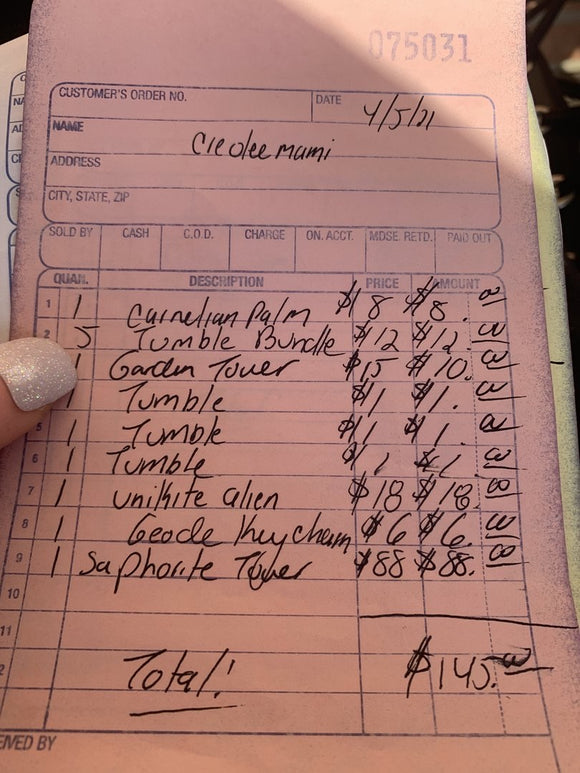 075031
CUSTOMER'S ORDER NO. DATE 4/5/21
NAME Creoleemami
ADDRESS
CITY, STATE, ZIP
SOLD BY CASH C.O.D. CHARGE ON. ACCT. MDSE. RETD. PAID OUT
QUAN. DESCRIPTION PRICE AMOUNT
1 1 Carnelian Palm $18 $8.00
2 5 Tumble Bundle $12 $12.00
1 Garden Tower $15 $10.00
1 Tumble $1 $1.00
5 1 Tumble $1 $1.00
6 1 Tumble $1 $1.00
7 1 unikite alien $18 $18.00
8 1 Geode Keychain $6 $6.00
9 1 Saphorite Tower $88 $88.00
10
11
2 Total! $145.00
EIVED BY